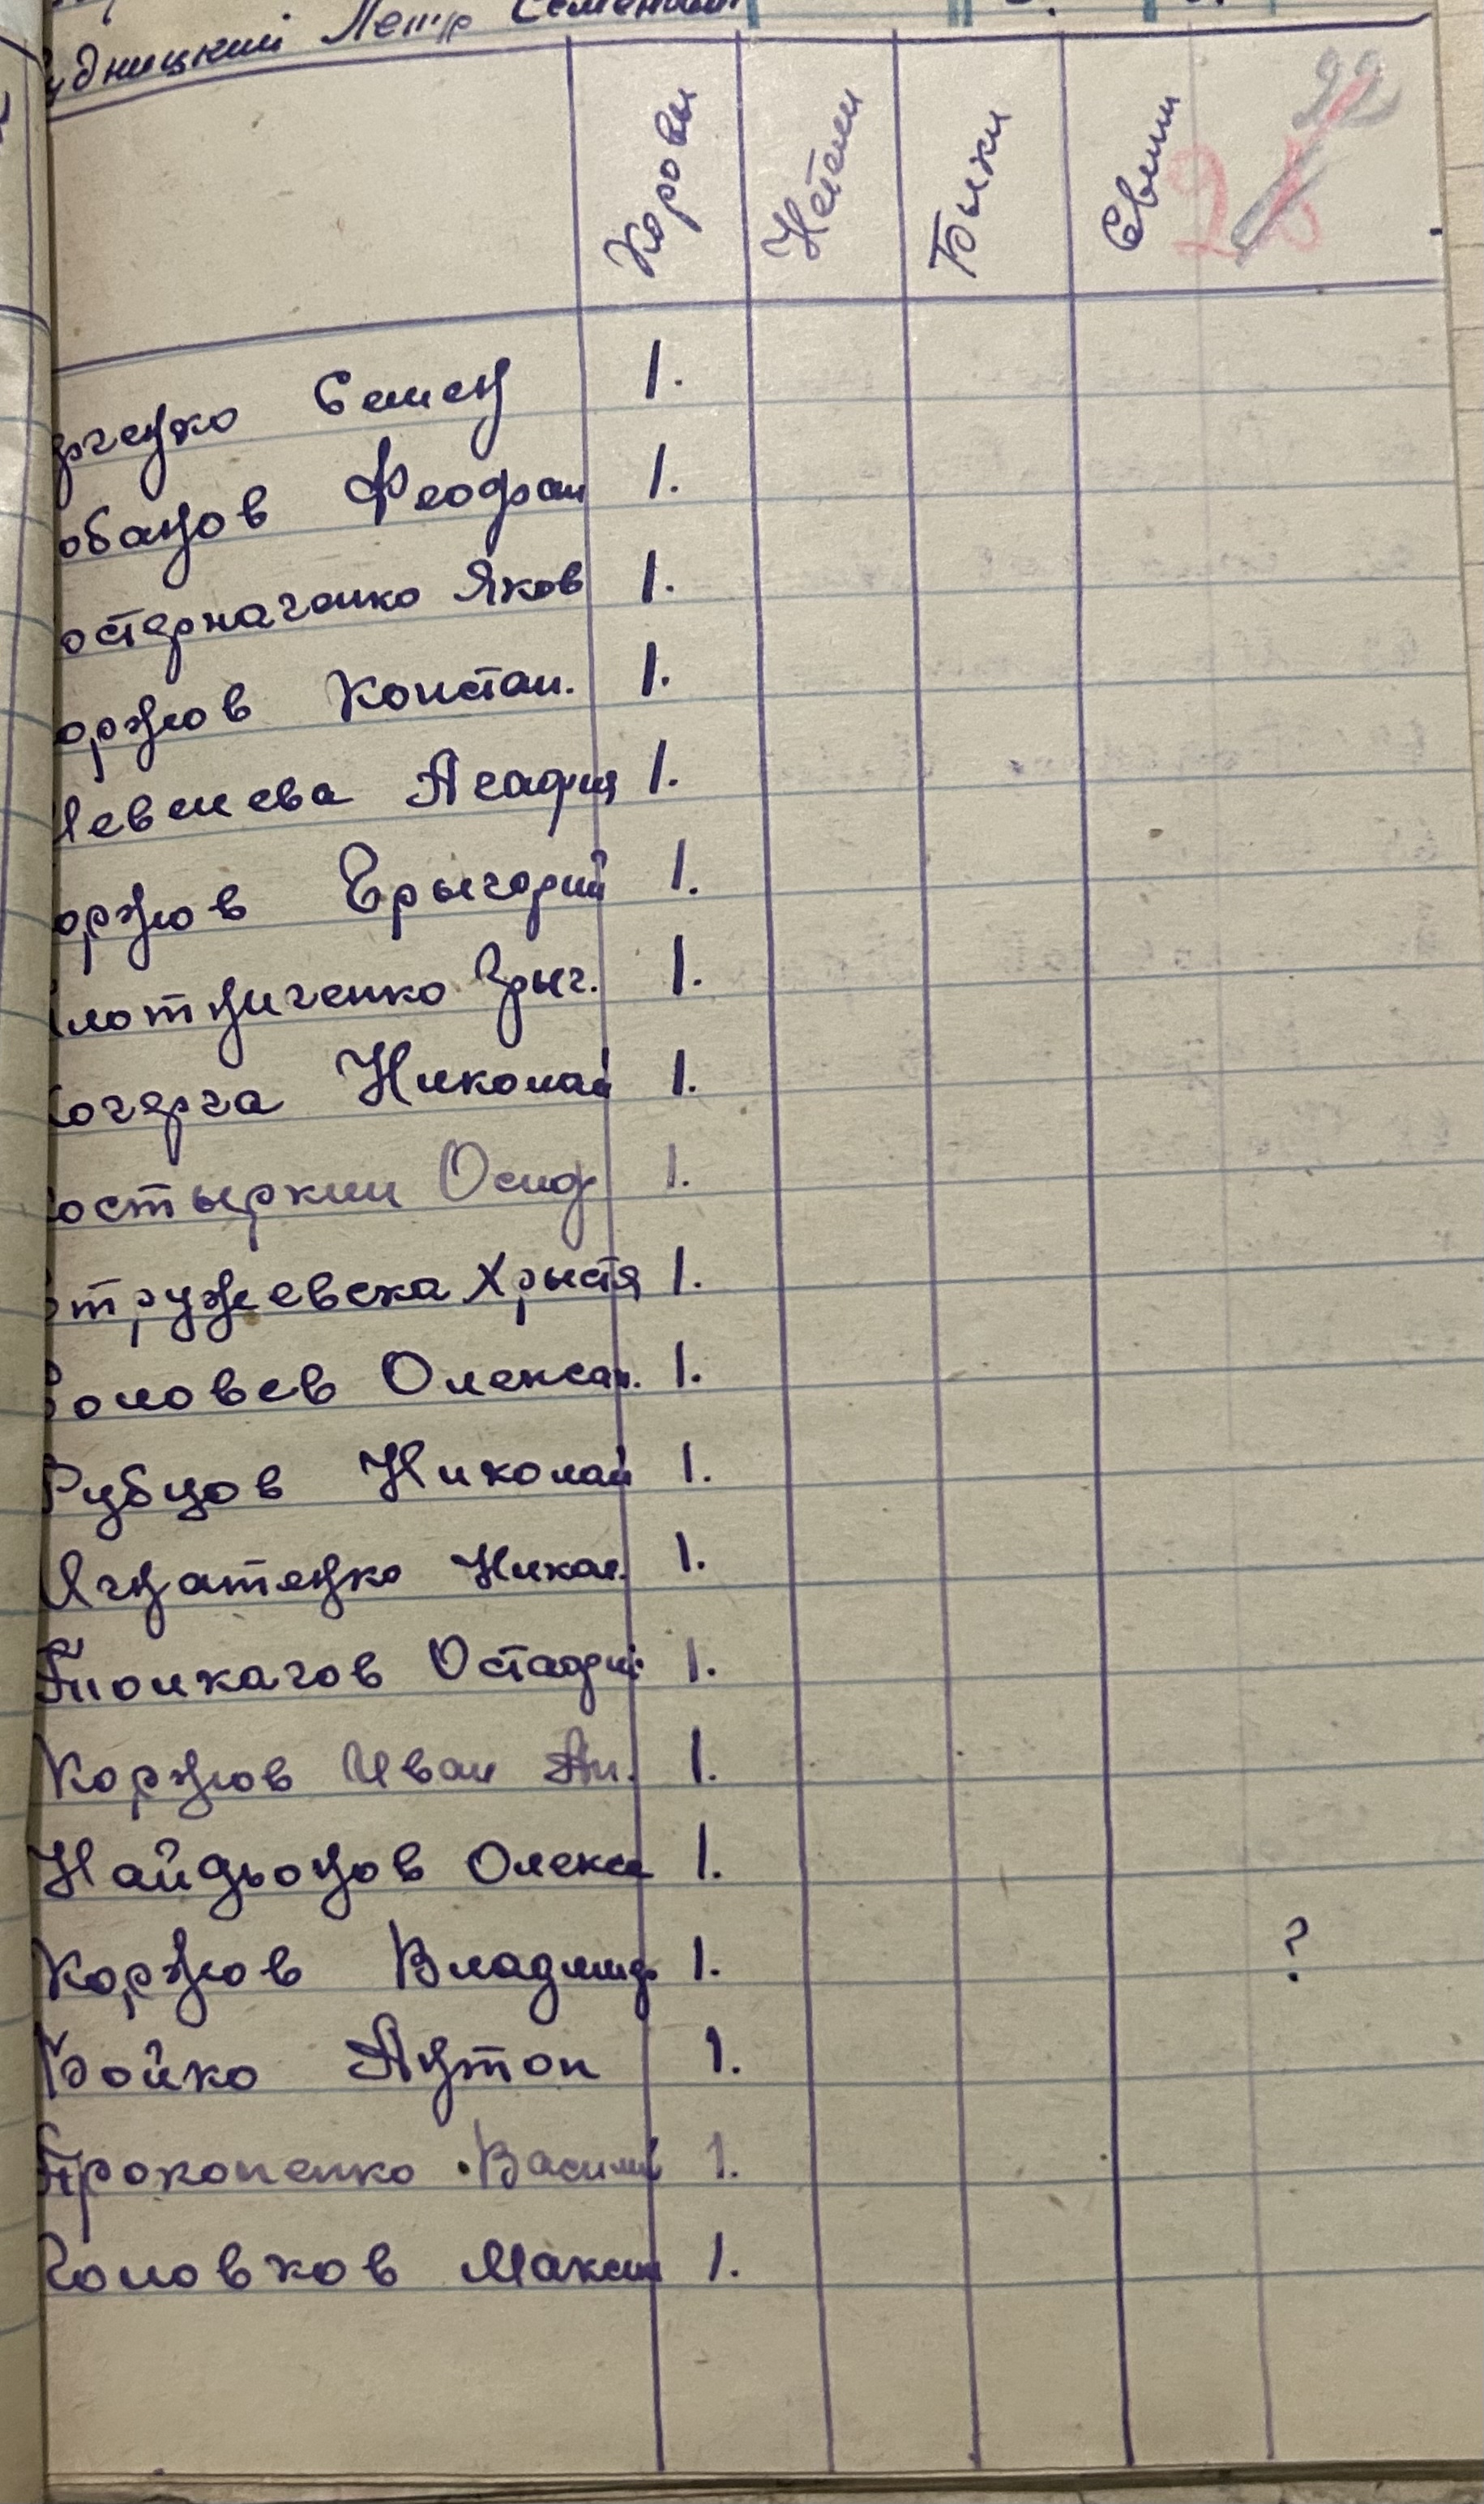 удницкий Петр Семенович
Коровы Нетели Быки Свиньи 22
рченко Семен 1.
обанов Феофан 1.
остерначенко Яков 1.
оржов Констан. 1.
Левшева Агафия 1.
оржов Грыгорий 1.
лотниченко Грыг. 1.
Кочерга Николай 1.
Костыркин Осип 1.
Стружевска Хрыстя 1.
Соловев Олексан. 1.
Рубцов Николай 1.
Ягнатенко Никол. 1.
Толкачов Остафи 1.
Коржов Иван Ан. 1.
Найдьонов Олекса 1.
Коржов Владимир 1. ?
Бойко Антон 1.
Прокопенко Василий 1.
Головков Максим 1.